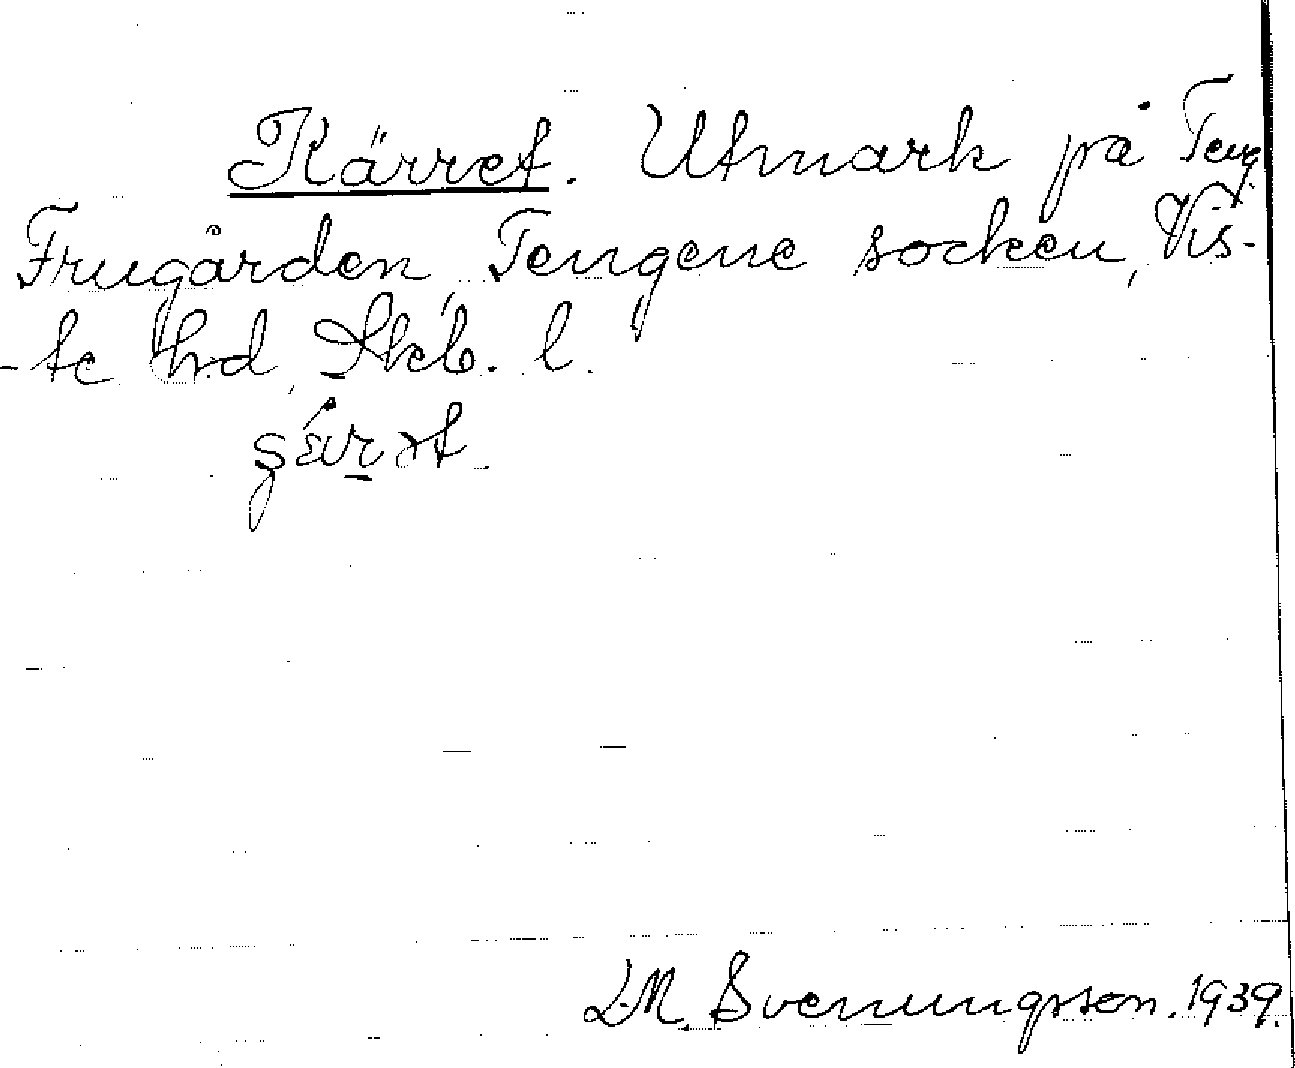 Kärret. Utmark på Teng.
Frugården, Tengene socken, Vis-
-te hrd, Skb. l.
L.M. Svenungsson. 1939.